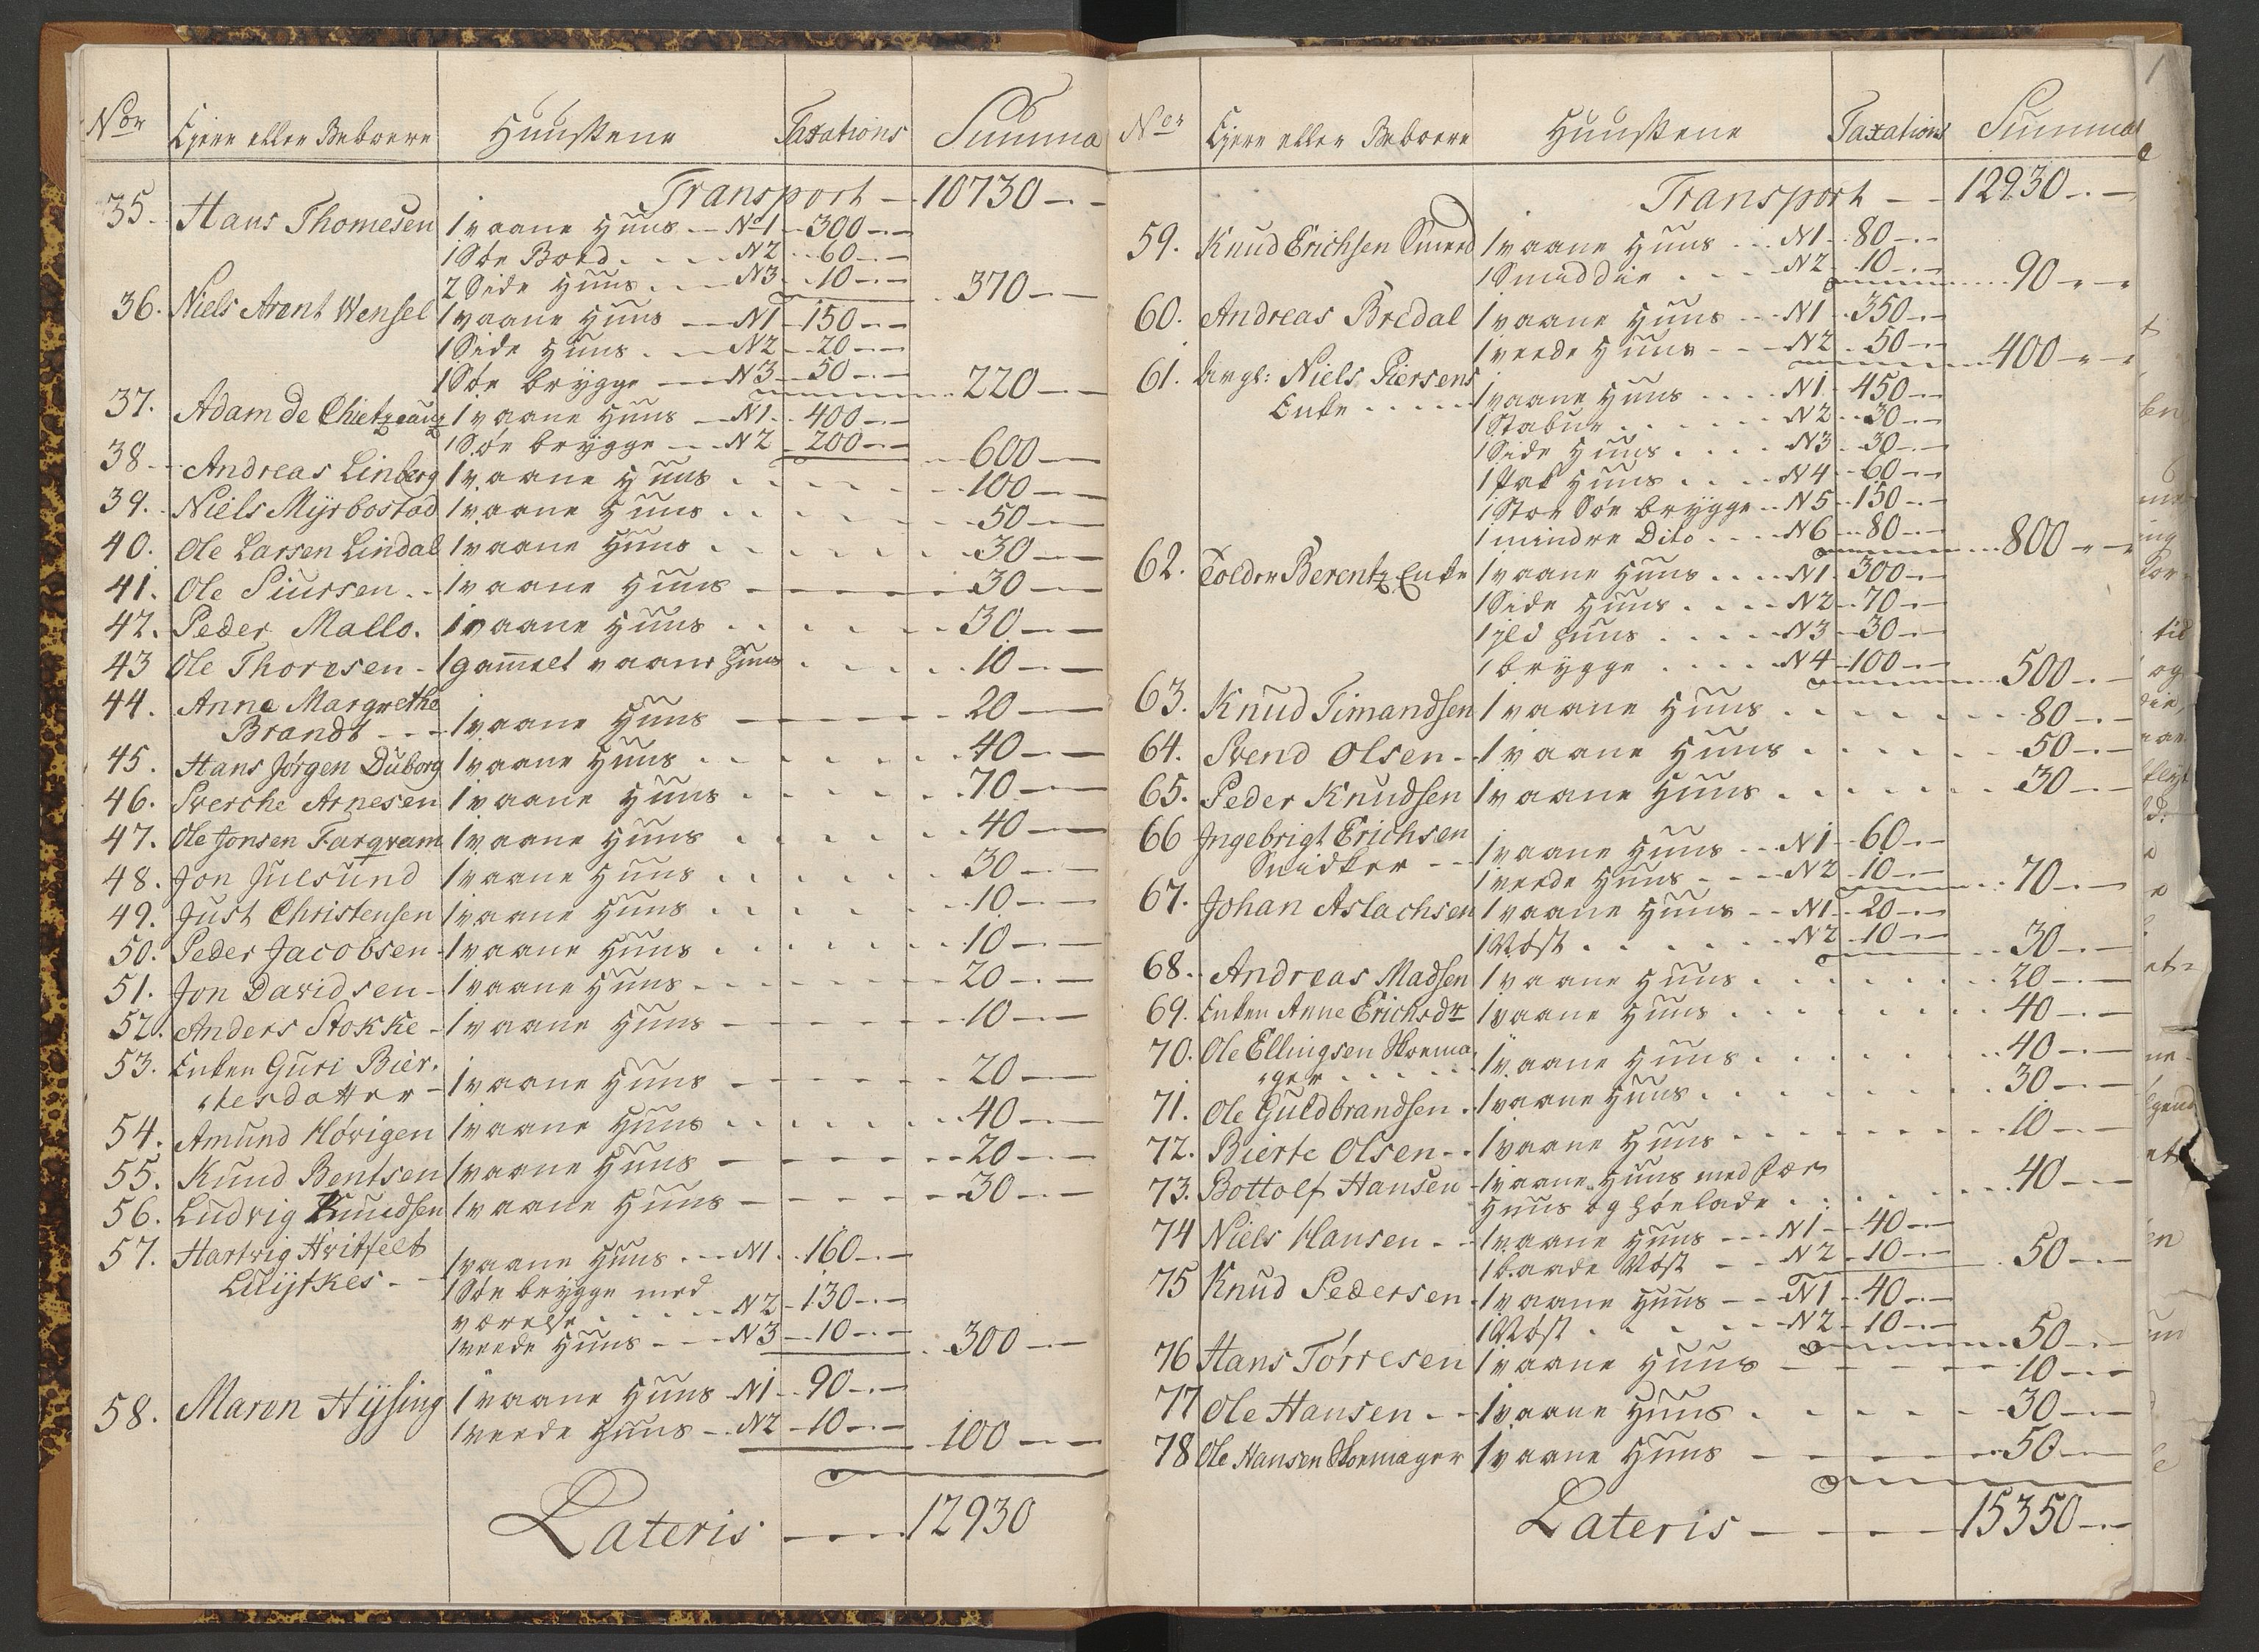 Nor Ejere eller Beboere Huusene Taxations Summa
Transport — 10730
35. Hans Thomesen 1 vaane Huus No 1 300
1 Søe Boed N2 60
2 Side Huus N3 10 370
36. Niels Arent Wensel 1 vaane Huus N1 150
1 Side Huus N2 20
1 Søe brygge N3 50 220
37. Adam de 1 vaane Huus N1 400
1 Søe brygge N2 200 600
38 Andreas Linberg 1 vaane Huus 100
39. Niels Myrbostad 1 vaane Huus 50
40. Ole Larsen Lindal 1 vaane Huus 30
41. Ole Siursen 1 vaane Huus 30
42. Peder Mallo. 1 vaane Huus 30
43 Ole Thoresen 1 gammelt vaane Huus 10
44. Anne Margrethe
Brandt 1 vaane Huus 20
45. Hans Jørgen Duborg 1 vaane Huus 40
46. Sverche Arnesen 1 vaane Huus 70
47. Ole Jonsen Fargvam 1 vaane Huus 40
48. Jon Julsund 1 vaane Huus 30
49. Just Christensen 1 vaane Huus 10
50. Peder Jacobsen 1 vaane Huus 10
51. Jon Davidsen 1 vaane Huus 20
52. Anders Stokke 1 vaane Huus 10
53. Enken Guri Bier-
tesdatter 1 vaane Huus 20
54. Amund Høvigen 1 vaane Huus 40
55. Knud Bentsen 1 vaane Huus 20
56. Ludvig Knudsen 1 vaane Huus 30
57. Hartvig Hvitfelt 1 vaane Huus N1 160
Lüijtkes 1 Søe brygge med
værelse N2 130
1 veede Huus N3 10 300
58. Maren Hysing 1 vaane Huus N1 90
1 veede Huus N2 10 100
Lateris 12930
Ner Ejere eller Beboere Huusene Taxations Summa
Transport 12930
59. Knud Erichsen Smed 1 vaane Huus N1 80
1 Smeddie N2 10 90
60. Andreas Bredal 1 vaane Huus N1 350
1 veede Huus N2 50 400
61. Niels Piersens
Enke 1 vaane Huus N1 450
1 Stabur N2 30
1 Side Huus N3 30
1 Pak Huus N4 60
1 Stor Søe brygge N5 150
1 mindre Dito N6 80 800
62. Tolder Berentz Enke 1 vaane Huus N1 300
1 Side Huus N2 70
1 Ild Huus N3 30
1 brygge N4 100 500
63. Knud Timandsen 1 vaane Huus 80
64. Svend Olsen 1 vaane Huus 50
65. Peder Knudsen 1 vaane Huus 30
66 Ingebrigt Erichsen
Snidker 1 vaane Huus N1 60
1 veede Huus N2 10 70
67. Johan Aslachsen 1 vaane Huus N1 20
1 Nøst N2 10 30
68. Andreas Madsen 1 vaane Huus 20
69. Enken Anne Erichsdtr 1 vaane Huus 40
70. Ole Ellingsen Skoema-
ger 1 vaane Huus 40
71. Ole Guldbrandsen 1 vaane Huus 30
72. Bierte Olsen 1 vaane Huus 10
73. Bottolf Hansen 1 vaane Huus med Fæe
Huus og Høelade 40
74 Niels Hansen 1 vaane Huus N1 40
1 baade Nøst N2 10 50
75 Knud Pedersen 1 vaane Huus N1 40
1 Nøst N2 10 50
76 Hans Tørresen 1 vaane Huus 10
77 Ole Hansen 1 vaane Huus 30
78 Ole Hansen Skoemager 1 vaane Huus 50
Lateris 15350